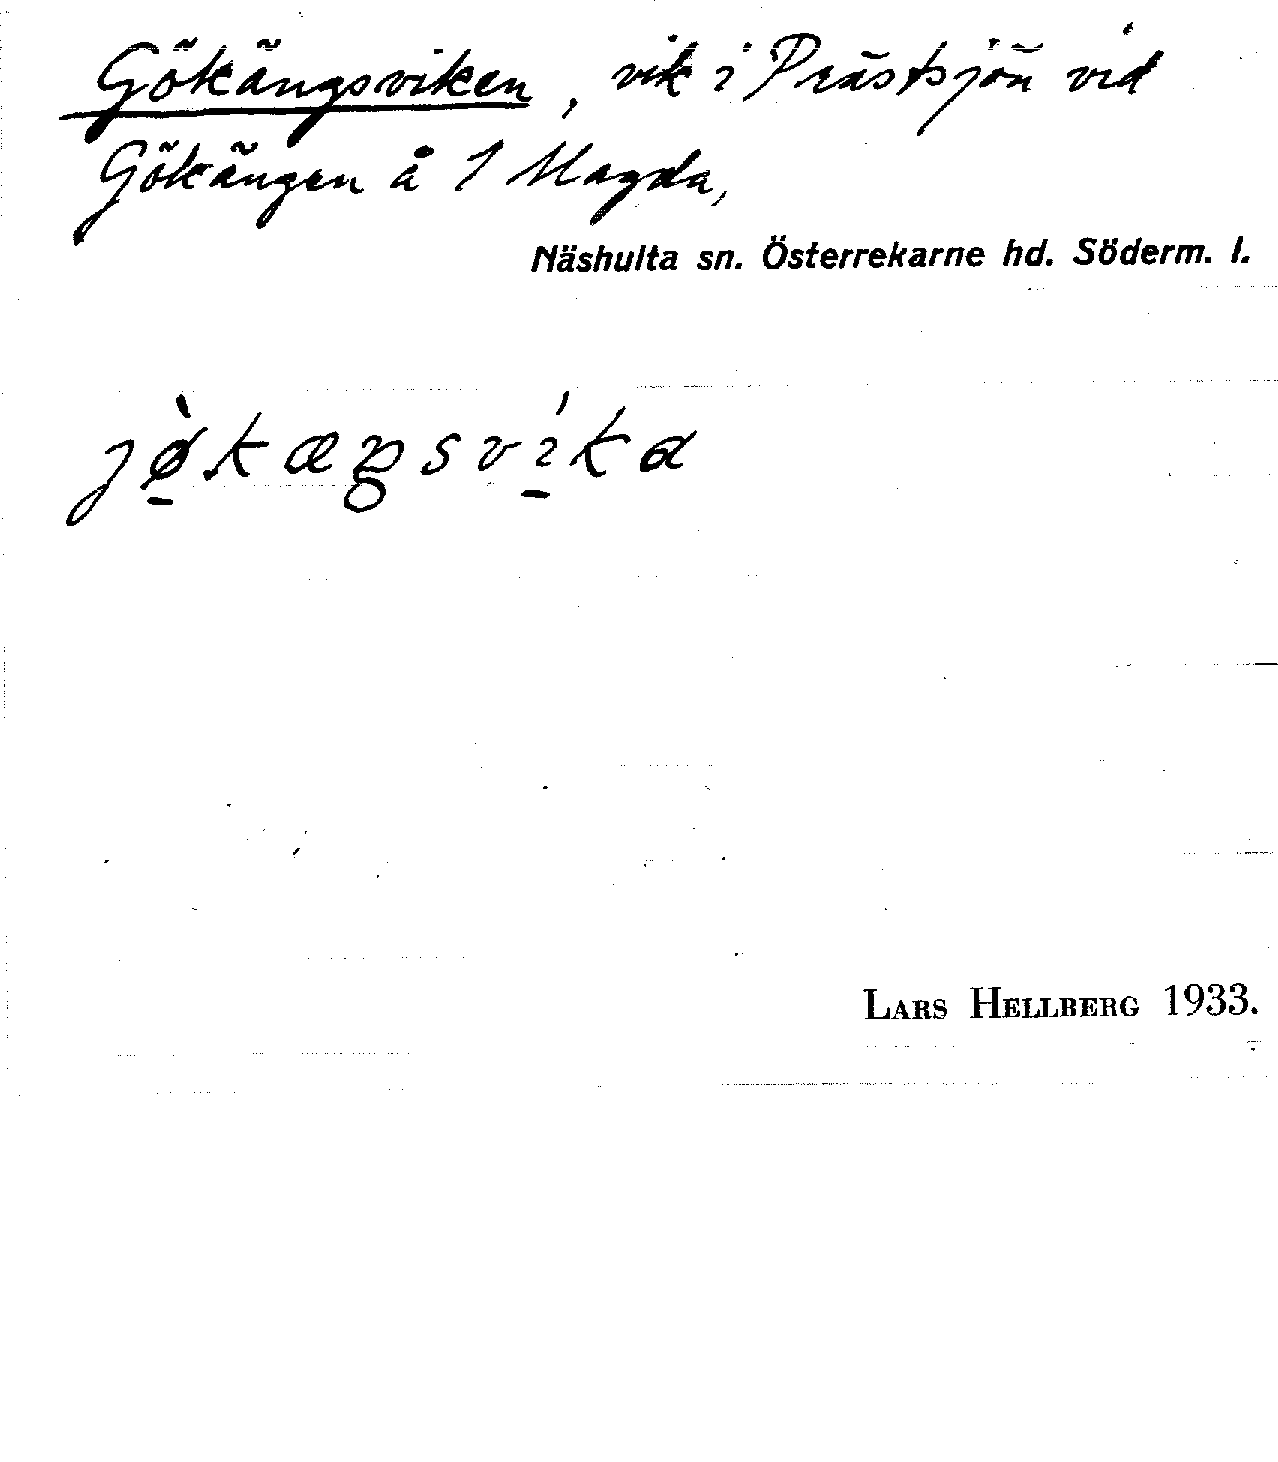 Gökängsviken, vik i Prästsjön vid
Gökängen å 1 Magda,
Näshulta sn. Österrekarne hd. Söderm. l.
jø̀kæŋsvíka
LARS HELLBERG 1933.